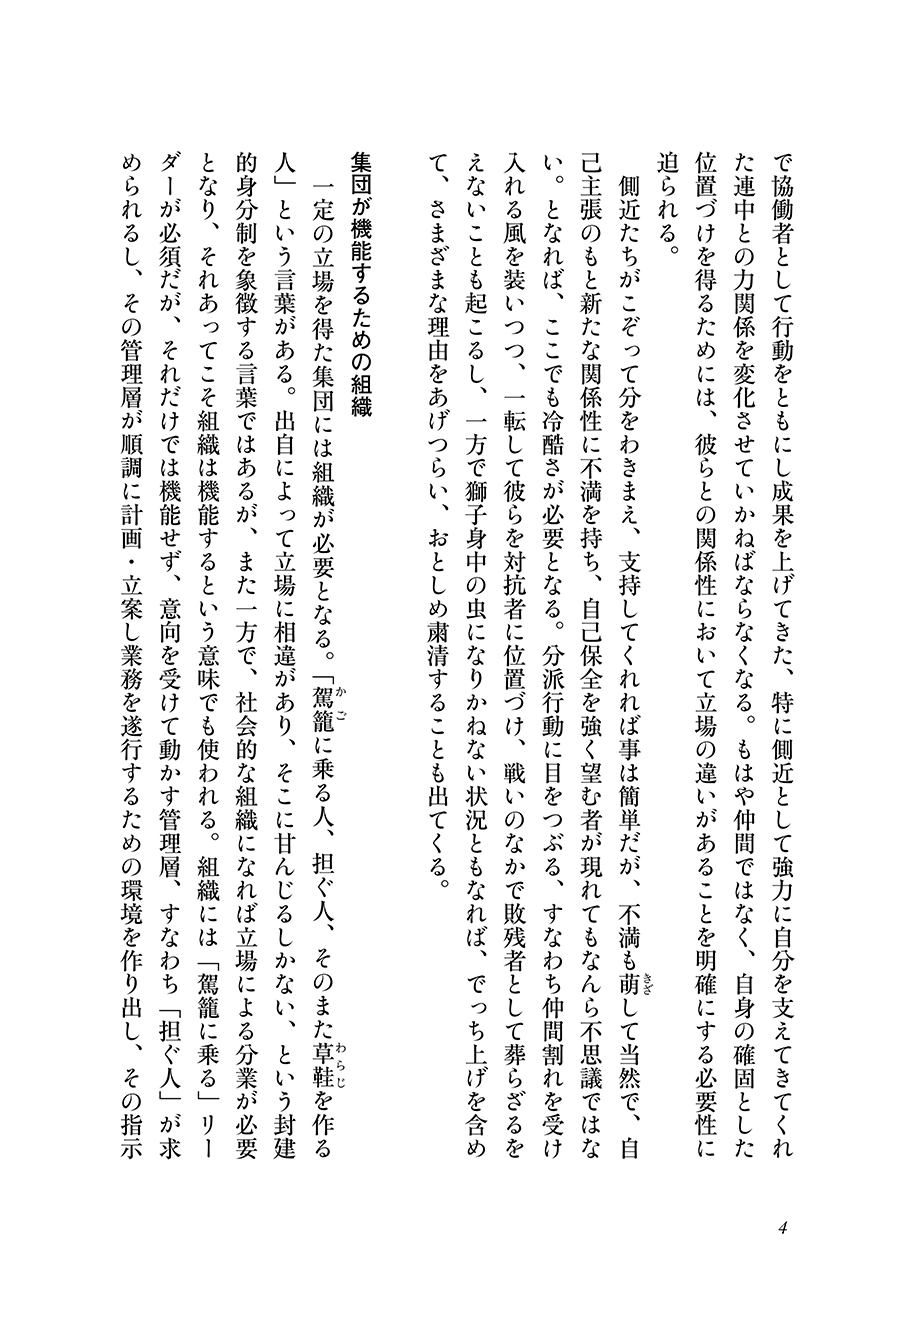 で協働者として行動をともにし成果を上げてきた、特に側近として強力に自分を支えてきてくれ
た連中との力関係を変化させていかねばならなくなる。もはや仲間ではなく、自身の確固とした
位置づけを得るためには、彼らとの関係性において立場の違いがあることを明確にする必要性に
迫られる。
側近たちがこぞって分をわきまえ、支持してくれれば事は簡単だが、不満も萌して当然で、自
きざ
己主張のもと新たな関係性に不満を持ち、自己保全を強く望む者が現れてもなんら不思議ではな
い。となれば、ここでも冷酷さが必要となる。分派行動に目をつぶる、すなわち仲間割れを受け
入れる風を装いつつ、一転して彼らを対抗者に位置づけ、戦いのなかで敗残者として葬らざるを
えないことも起こるし、一方で獅子身中の虫になりかねない状況ともなれば、でっち上げを含め
て、さまざまな理由をあげつらい、おとしめ粛清することも出てくる。
集団が機能するための組織
一定の立場を得た集団には組織が必要となる。「駕籠に乗る人、担ぐ人、そのまた草鞋を作る
かご
わらじ
人」という言葉がある。出自によって立場に相違があり、そこに甘んじるしかない、という封建
的身分制を象徴する言葉ではあるが、また一方で、社会的な組織になれば立場による分業が必要
となり、それあってこそ組織は機能するという意味でも使われる。組織には「駕籠に乗る」リー
ダーが必須だが、それだけでは機能せず、意向を受けて動かす管理層、すなわち「担ぐ人」が求
められるし、その管理層が順調に計画・立案し業務を遂行するための環境を作り出し、その指示
4